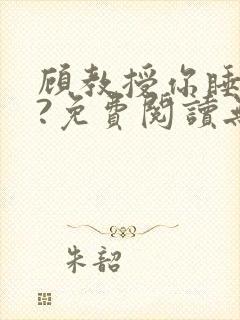 顾教授你睡
?免費閱讀
朱韶